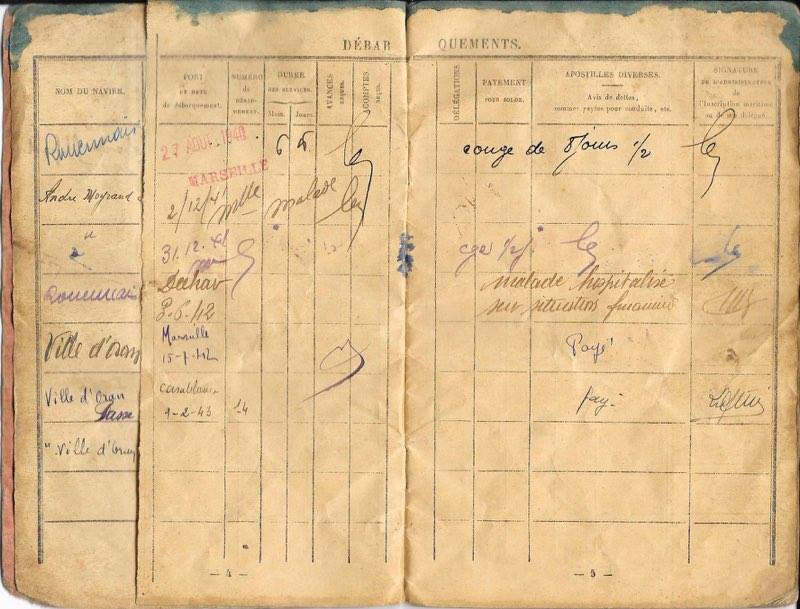 DÉBARQUEMENTS.
NOM DU NAVIRE. PORT ET DATE de débarquement. NUMÉRO de DÉBARQUEMENT. DURÉE DES SERVICES. Mois. Jours. AVANCES reçues. COMPTES reçus. DÉLÉGATIONS PAYEMENT POUR SOLDE. APOSTILLES DIVERSES. Avis de dettes, sommes payées pour conduite, etc. SIGNATURE DE L'ADMINISTRATEUR de l'Inscription maritime ou de son délégué.
Rouennais 27 AOUT 1940 MARSEILLE 6 congé de 8 jours 1/2
André Moyrand 2/12/41 Mlle malade
" 31.12.41
Rouennais 3-6-42 malade hospitalisé
Ville d'Oran Marseille 15-7-42 Payé
Ville d'Oran Casablanca 9-2-43 14
" Ville d'Oran
— 4 — — 5 —